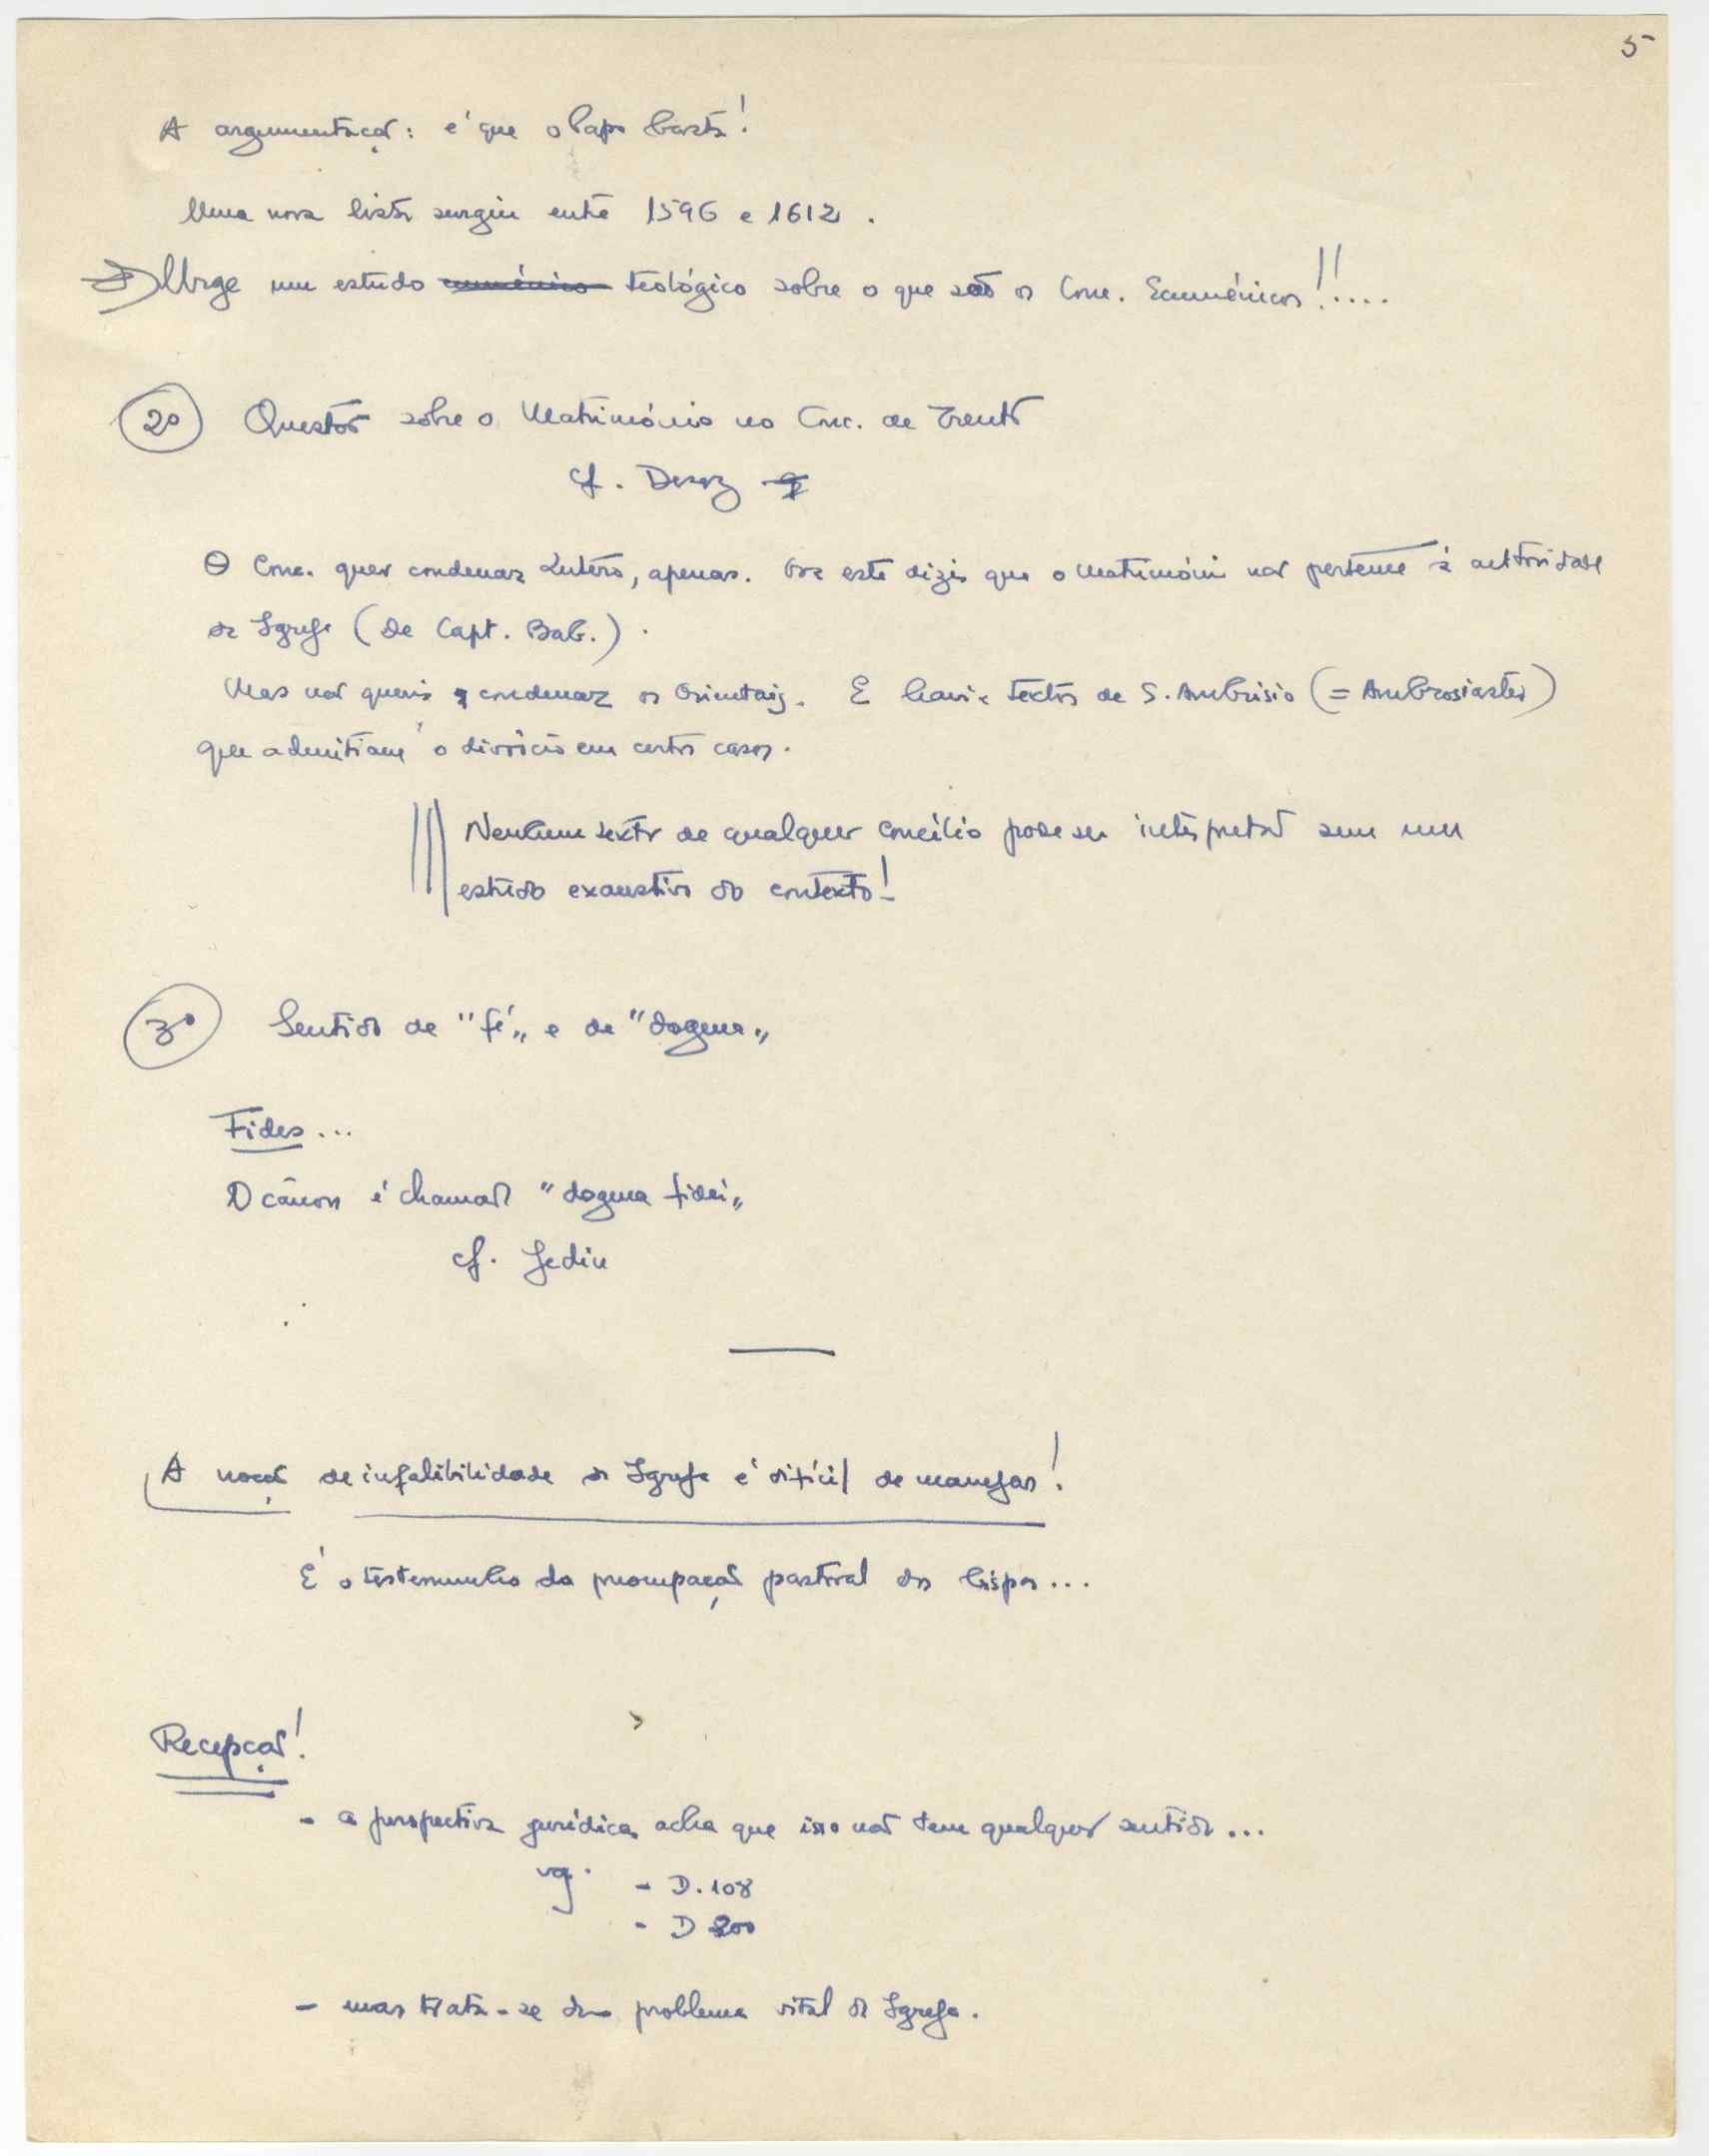 5
A argumentação: é que o Papa basta!
Uma nova lista surgiu entre 1596 e 1612.
Urge um estudo ecuménico teológico sobre o que são os Conc. Ecuménicos!!....
2º Questão sobre o Matrimónio no Conc. de Trento
cf. Denz
O Conc. quer condenar Lutero, apenas. Ora este dizia que o Matrimónio não pertence à autoridade
da Igreja (De Capt. Bab.).
Mas não queria condenar os Orientais. E havia textos de S. Ambrósio (= Ambrosiaster)
que admitiam o divórcio em certos casos.
Nenhum texto de qualquer concílio pode ser interpretado sem um
estudo exaustivo do contexto!
3º Sentido de "fé" e de "dogma"
Fides...
O cânon é chamado "dogma fidei"
cf. Jedin
A noção de infalibilidade da Igreja é difícil de manejar!
É o testemunho da preocupação pastoral dos bispos...
Recepção!
- a perspectiva jurídica acha que isso não tem qualquer sentido...
vg. - D. 108
- D 200
- mas trata-se dum problema vital da Igreja.